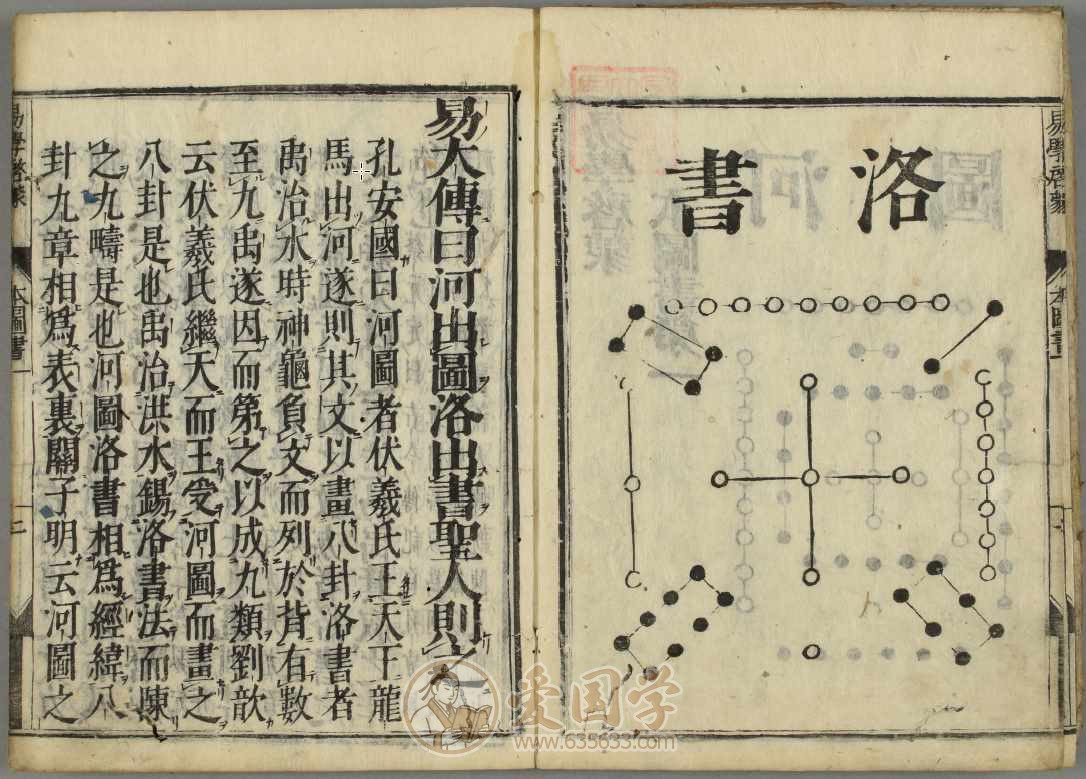 洛書
易學啓蒙
本圖書
易大傳曰河出圖洛出書聖人則之
孔安國曰河圖者伏羲氏王天下龍
馬出河遂則其文以畫八卦洛書者
禹治水時神龜負文而列於背有數
至九禹遂因而第之以成九類劉歆
云伏羲氏繼天而王受河圖而畫之
八卦是也禹治洪水錫洛書法而陳
之九疇是也河圖洛書相爲經緯八
卦九章相爲表裏關子明云河圖之
本圖書
爱国学
www.635633.com